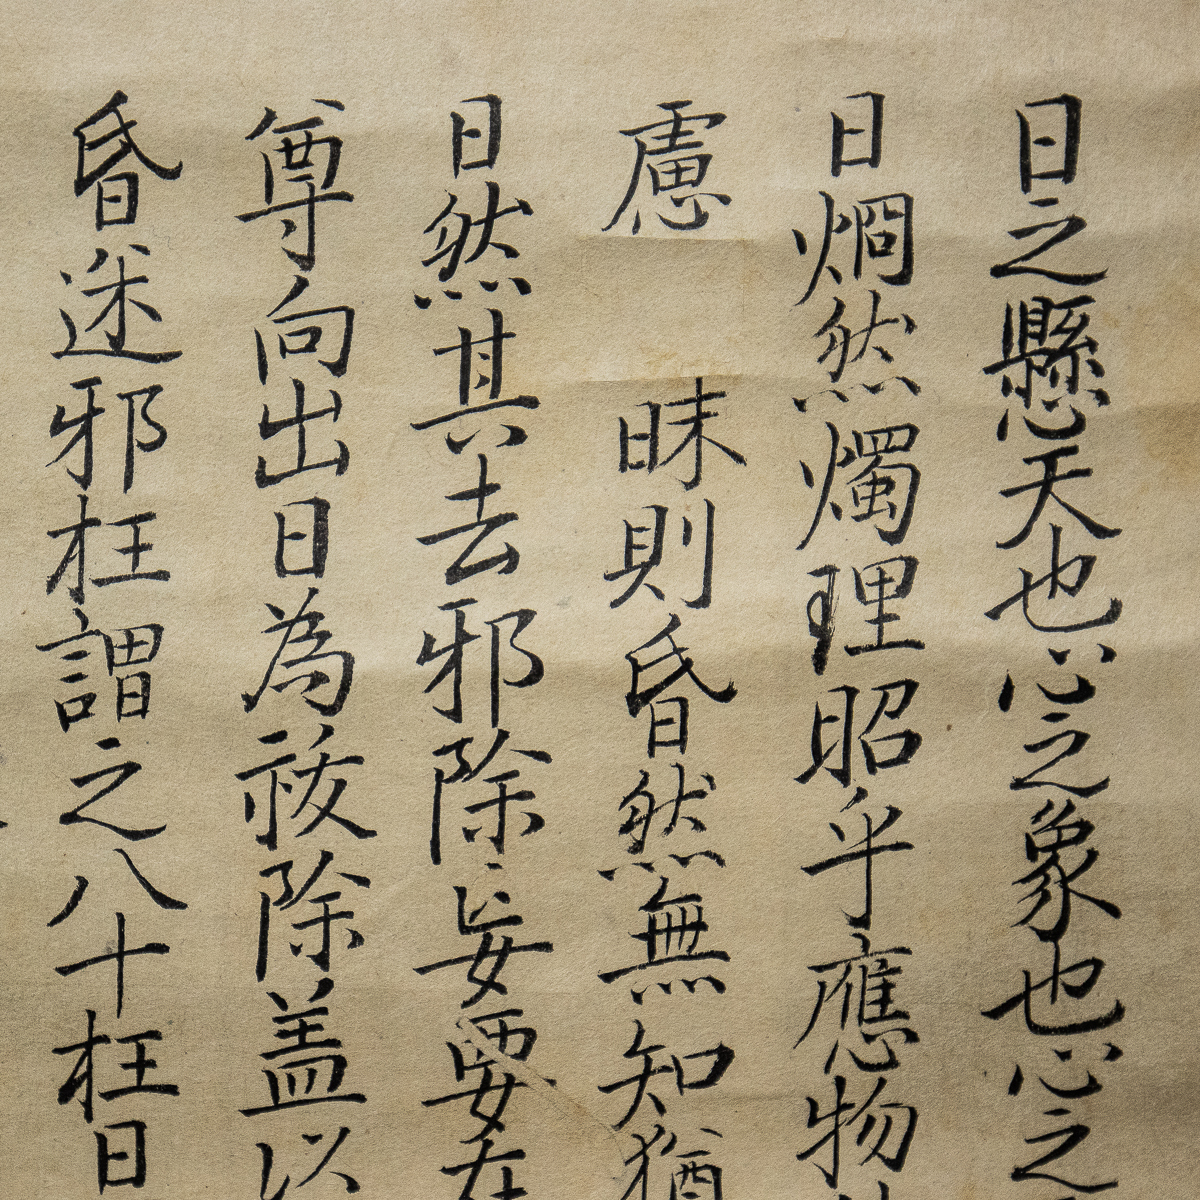 日之懸天也心之象也心之
日烱然燭理昭乎應物
慮 昧則昏然無知猶
日然其去邪除妄要在
尊向出日為祓除盖以
昏迷邪枉謂之八十枉日